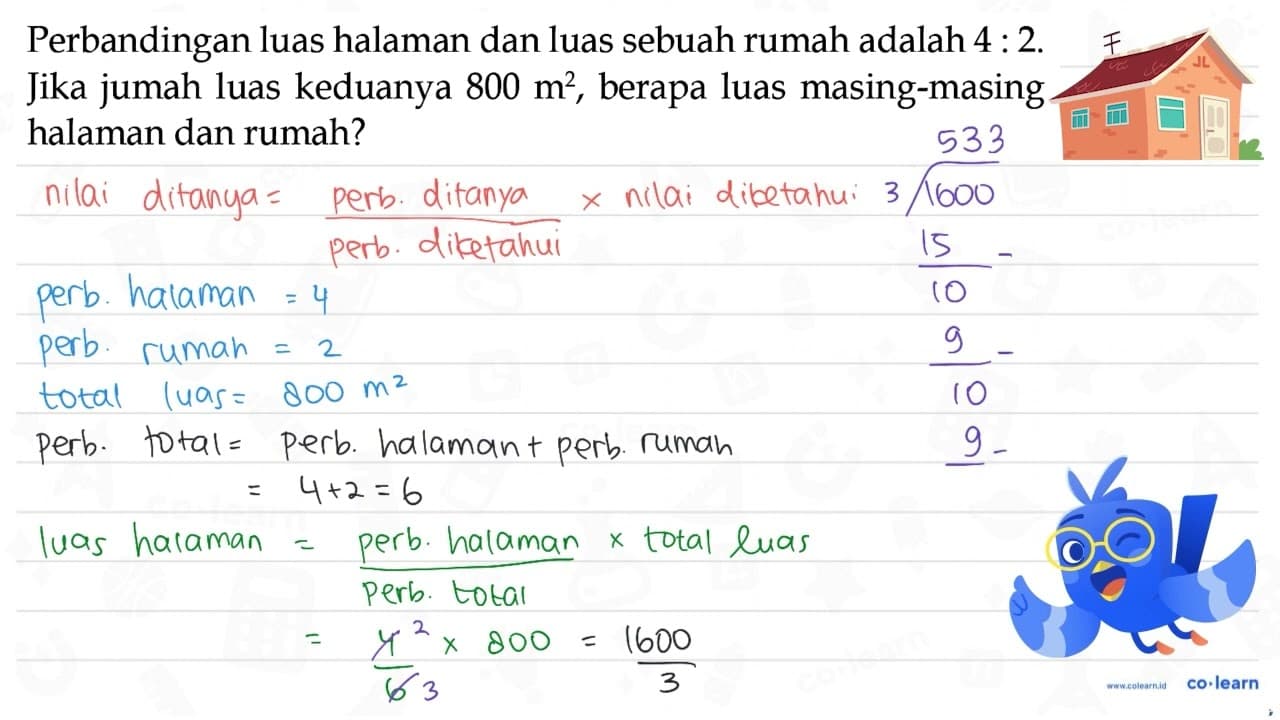 Perbandingan luas halaman dan luas sebuah rumah adalah 4 : 2.
Jika jumah luas keduanya 800 m², berapa luas masing-masing
halaman dan rumah?
nilai ditanya = perb. ditanya × nilai diketahui
perb. diketahui
perb. halaman = 4
perb. rumah = 2
total luas = 800 m²
perb. total = perb. halaman + perb. rumah
= 4 + 2 = 6
luas halaman = perb. halaman × total luas
perb. total
= 4 2 × 800 = 1600
6 3 3
533
3 1600
15 -
10
9 -
10
9 -
www.colearn.id co·learn